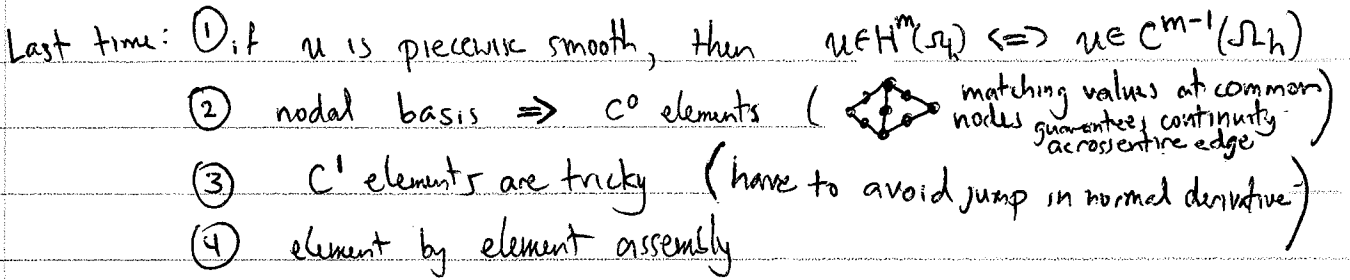 Last time: ① if u is piecewise smooth, then u∈H^m(Ω_h) <=> u∈C^{m-1}(Ω_h)
② nodal basis => C^0 elements ( matching values at common
nodes guarantees continuity
across entire edge )
③ C^1 elements are tricky (have to avoid jump in normal derivative)
④ element by element assembly